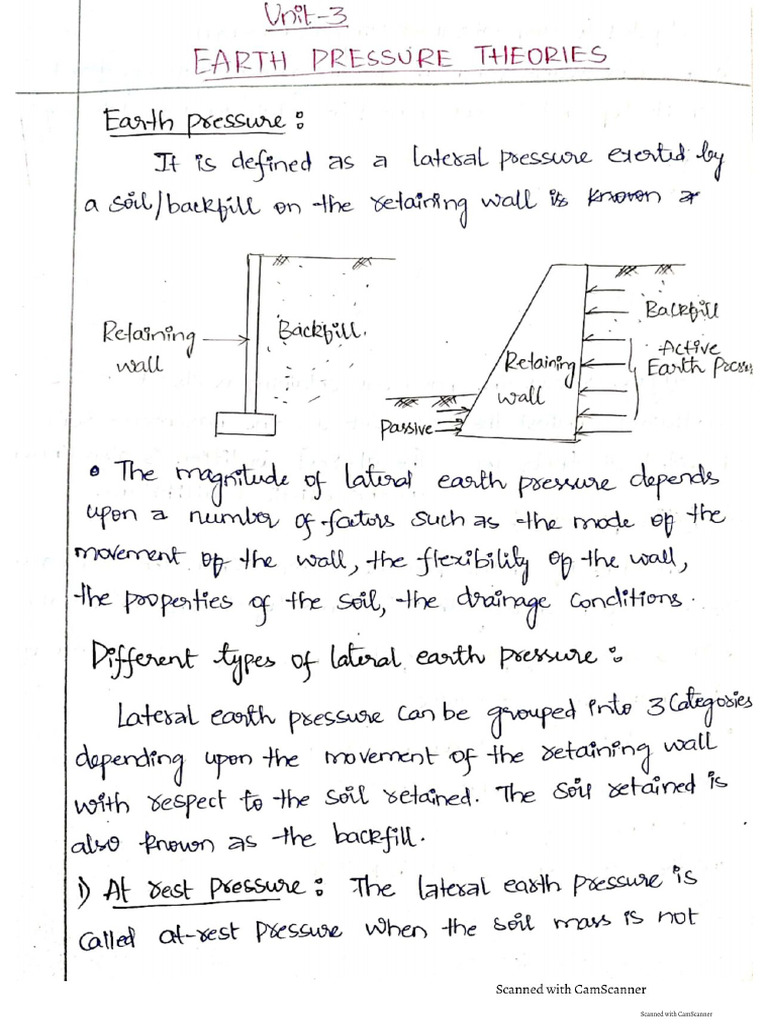 Unit-3
EARTH PRESSURE THEORIES
Earth pressure :
It is defined as a lateral pressure exerted by
a soil/backfill on the retaining wall is known
Retaining
wall
Backfill.
Backfill
Active
Earth
Retaining
wall
Passive
• The magnitude of lateral earth pressure depends
upon a number of factors such as the mode of the
movement of the wall, the flexibility of the wall,
the properties of the soil, the drainage conditions.
Different types of lateral earth pressure :
Lateral earth pressure can be grouped into 3 Categories
depending upon the movement of the retaining wall
with respect to the soil retained. The soil retained is
also known as the backfill.
1) At rest pressure : The lateral earth pressure is
called at-rest pressure when the soil mass is not
Scanned with CamScanner
Scanned with CamScanner